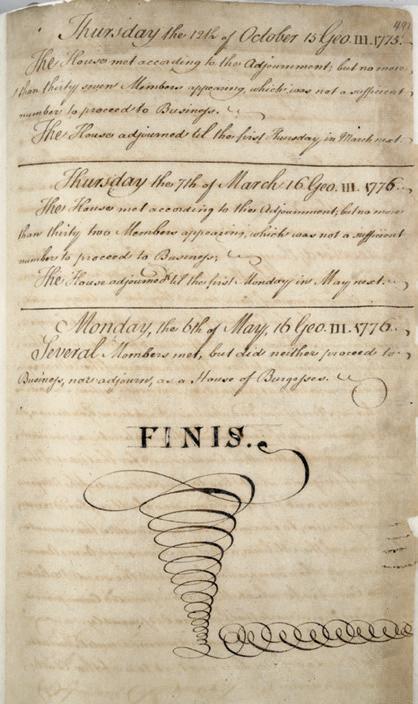 491
Thursday the 12th of October 15 Geo. III. 1775.
The House met according to the Adjournment; but no more
than thirty seven Members appearing, which was not a sufficient
number to proceed to Business.
The House adjourned til the first Thursday in March next.
Thursday the 7th of March 16 Geo. III. 1776.
The House met according to the Adjournment; but no more
than thirty two Members appearing, which was not a sufficient
number to proceed to Business;
The House adjourned til the first Monday in May next.
Monday, the 6th of May, 16 Geo. III. 1776.
Several Members met, but did neither proceed to
Business, nor adjourn, as a House of Burgesses.
FINIS.